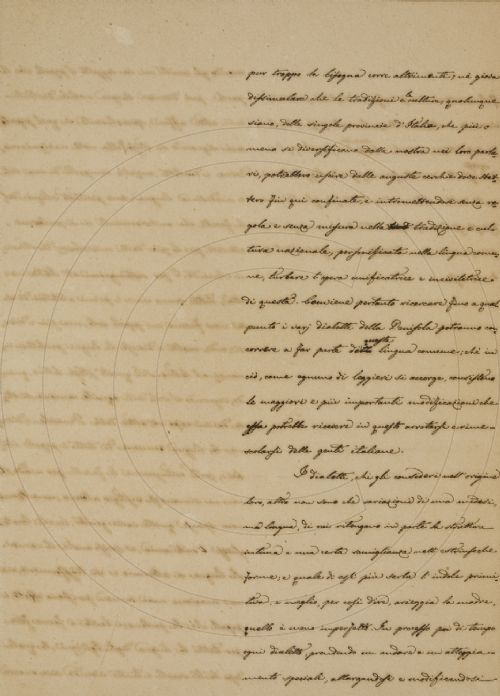 pur troppo la bisogna corre altrimenti; nè giova
dissimulare che le tradizioni e la coltura, qualunque
siano, delle singole provincie d'Italia, che più o
meno si diversificano dalla nostra nei loro parla-
ri, potrebbero uscire dalle anguste cerchie dove stet-
tero fin qui confinate, e intromettendosi senza re-
gola e senza misura nella tradizione e cul-
tura nazionale, personificata nella lingua comu-
ne, turbare l'opera unificatrice e incivilitrice
di questa. Conviene pertanto ricercare fino a qual
punto i varj dialetti della Penisola potranno con-
correre a far parte questa lingua comune; chè in
ciò, come ognuno di leggieri si accorge, consistono
le maggiori e più importanti modificazioni che
essa potrebbe ricevere in questo e rime-
scolarsi delle genti italiane.
I dialetti, chi gli consideri nell'origine
loro, altro non sono che variazioni di una medesi-
ma lingua, di cui ritengono in parte la struttura
intima e una certa somiglianza nell'estrinseche
forme; e quale di essi più serba l'indole primi-
tiva, e meglio, per così dire, arieggia la madre,
quello è meno imperfetto. In processo poi di tempo
ogni dialetto, prendendo un andare e un atteggia-
mento speciali, allargandosi e modificandosi